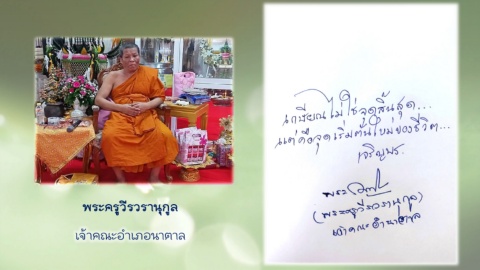 พระครูวีรวรานุกูล
เจ้าคณะอำเภอนาตาล
เกษียณไม่ใช่จุดสิ้นสุด...
แต่คือจุดเริ่มต้นใหม่ของชีวิต...
เจริญพร.
พระ
(พระครูวีรวรานุกูล)
เจ้าคณะอำเภอนาตาล